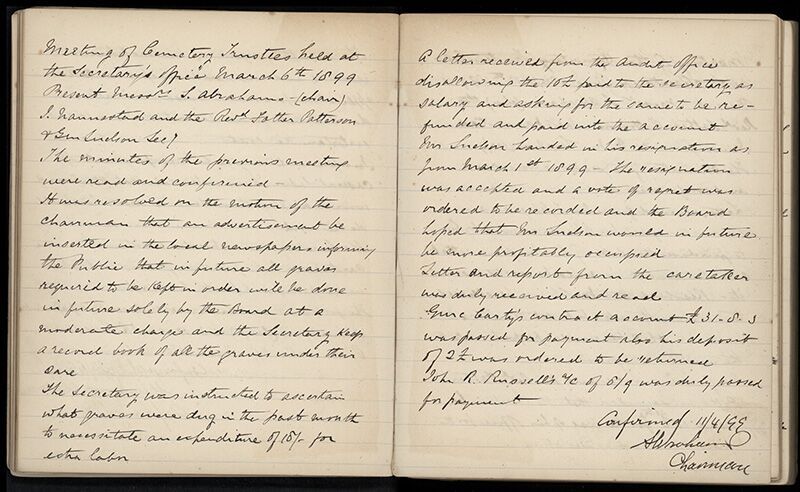 Meeting of Cemetery Trustees held at
the Secretary's Office March 6th 1899
Present Messrs S. Abrahams - (chair)
J. Nannestad and the Revd Father Patterson
& Geo Snelson Secy
The minutes of the previous meeting
were read and confirmed -
It was resolved on the motion of the
Chairman that an advertisement be
inserted in the local newspapers informing
the Public that in future all graves
required to be kept in order will be done
in future solely by the Board at a
moderate charge and the Secretary keep
a record book of all the graves under their
care
The Secretary was instructed to ascertain
what graves were dug in the past month
to necessitate an expenditure of 15/- for
extra labor
A letter received from the Audit Office
disallowing the paid to the secretary as
salary and asking for the same to be re-
funded and paid into the account
Mr Snelson handed in his resignation as
from March 1st 1899 - The resignation
was accepted and a vote of regret was
ordered to be recorded and the Board
hoped that Mr Snelson would in future
be more profitably occupied
Letter and report from the caretaker
was duly received and read
Carty's contract account £31-8-3
was passed for payment also his deposit
of was ordered to be returned
John R. Russell's a/c of 5/9 was duly passed
for payment
Confirmed 11/4/99
S Abrahams
Chairman